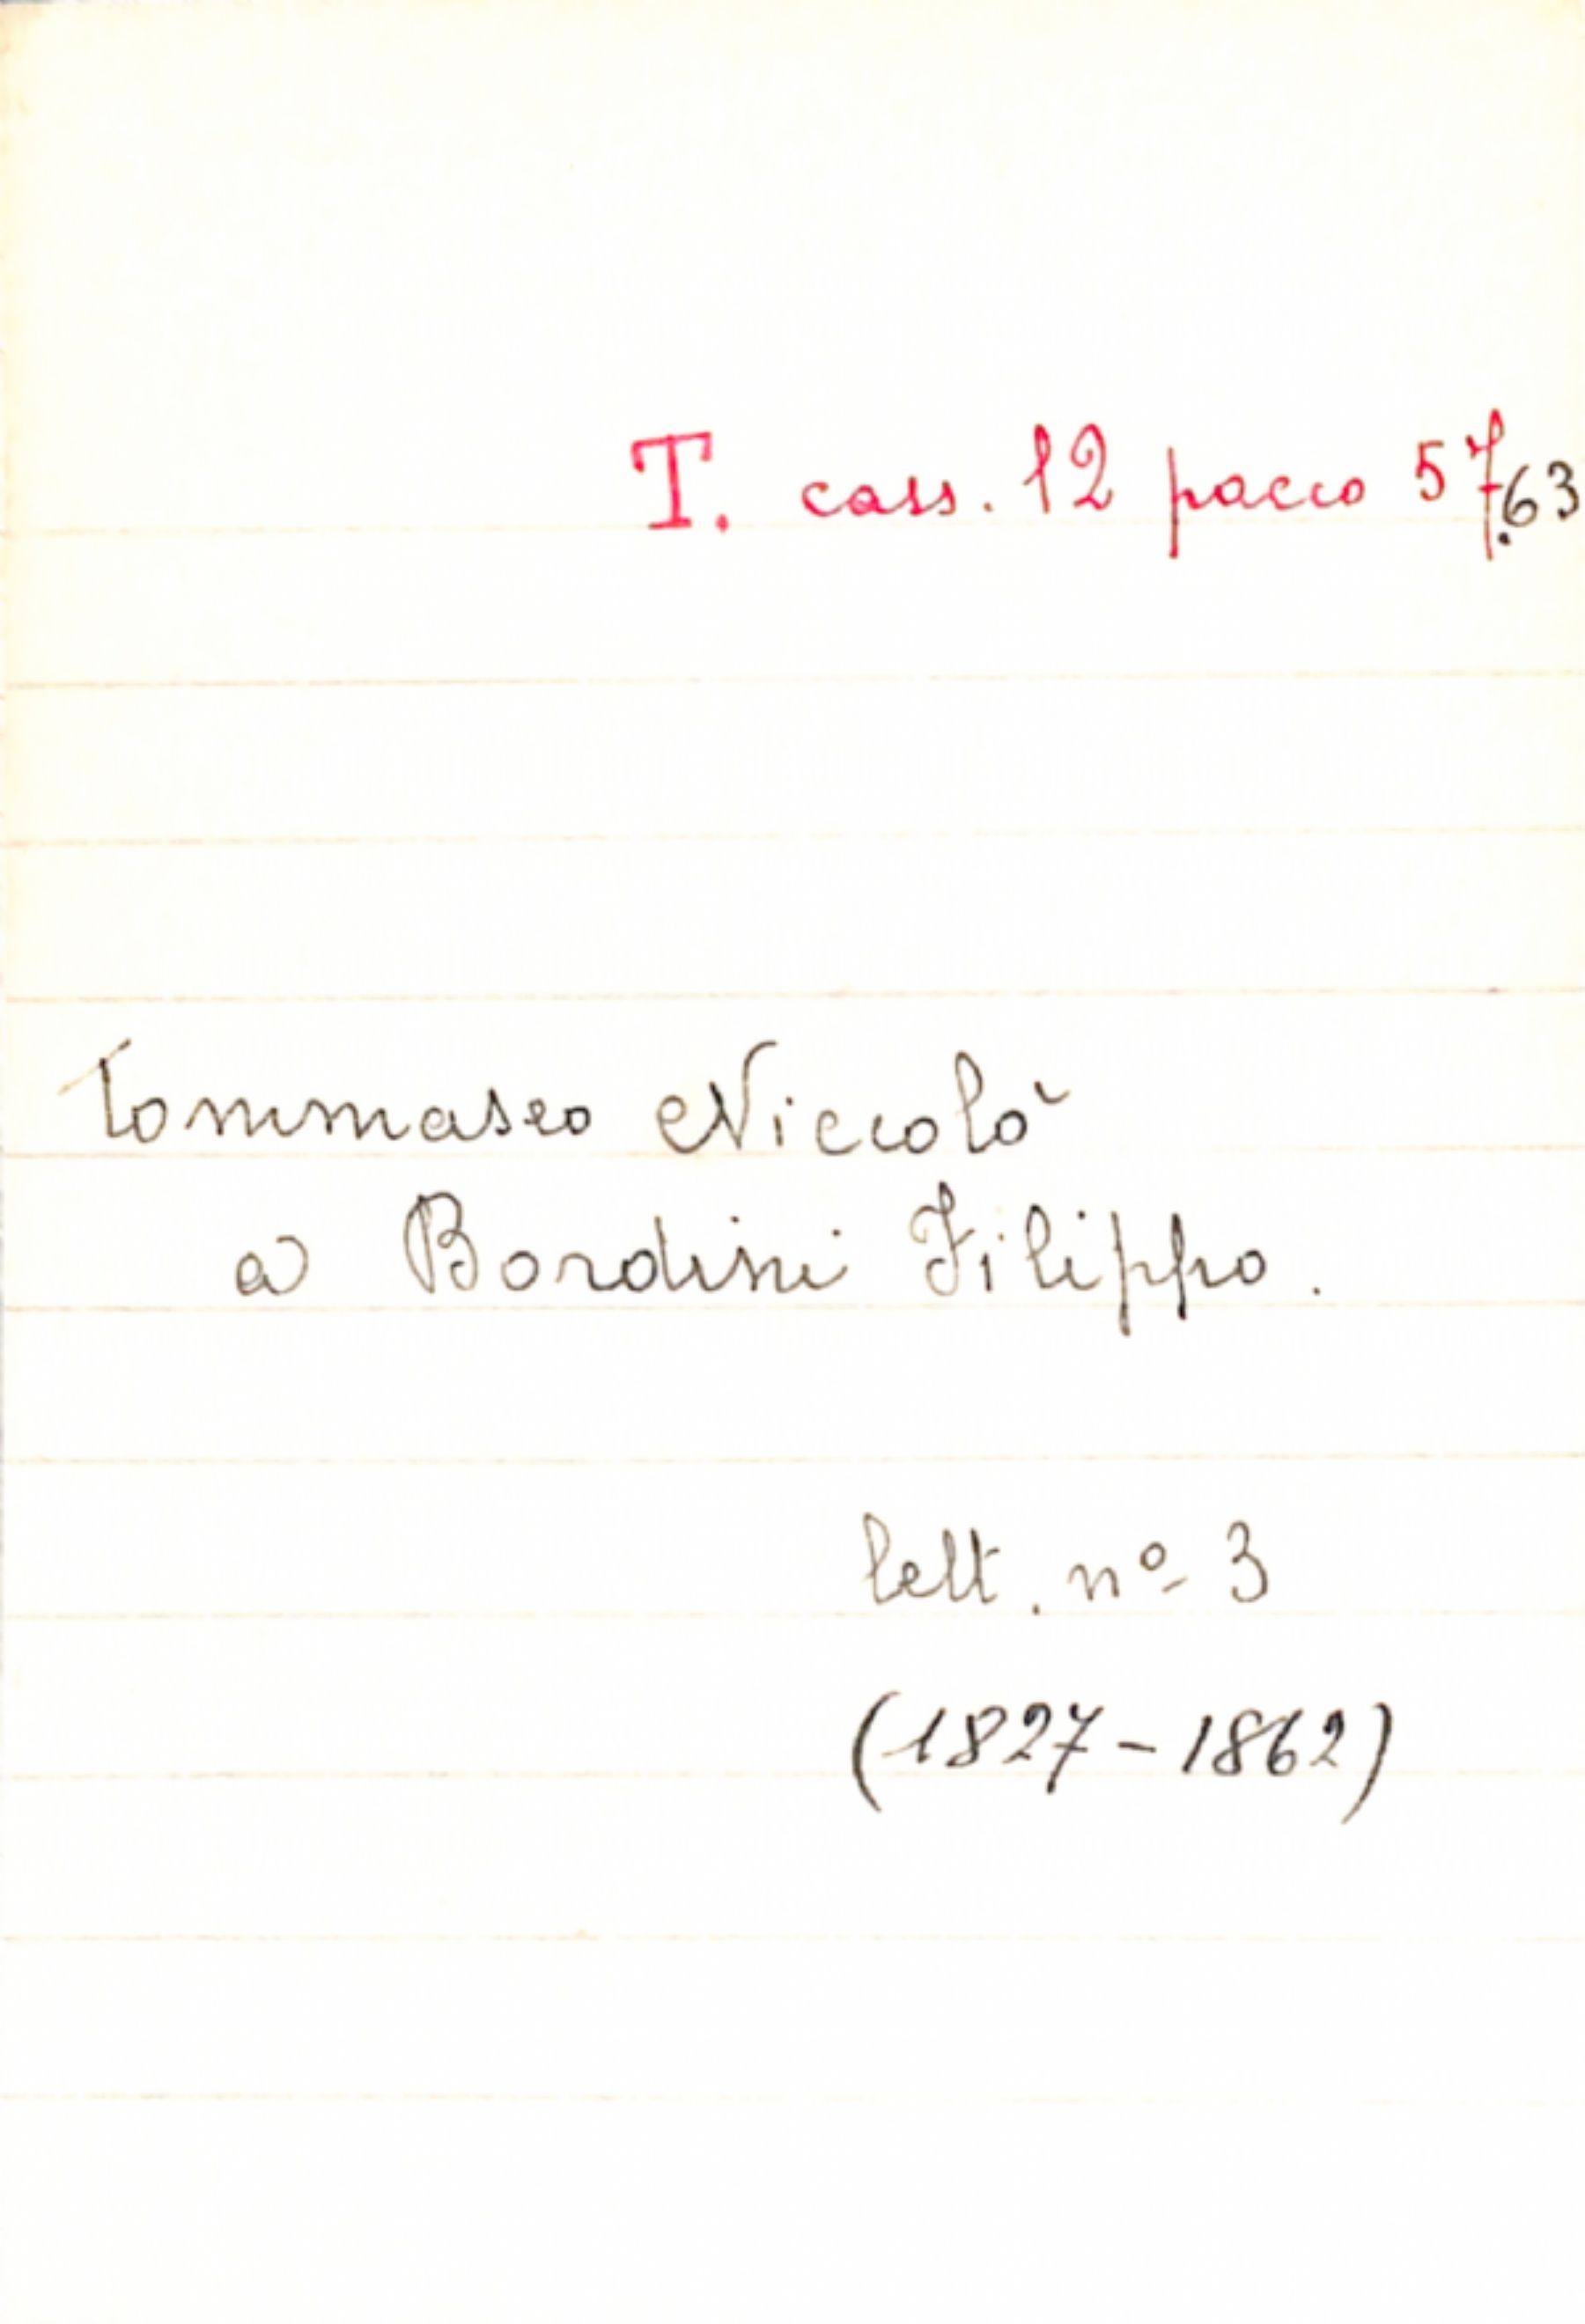 T. cass. 12 pacco 57.63
Tommaseo Niccolò
a Bordini Filippo.
lett. nº 3
(1827-1862)